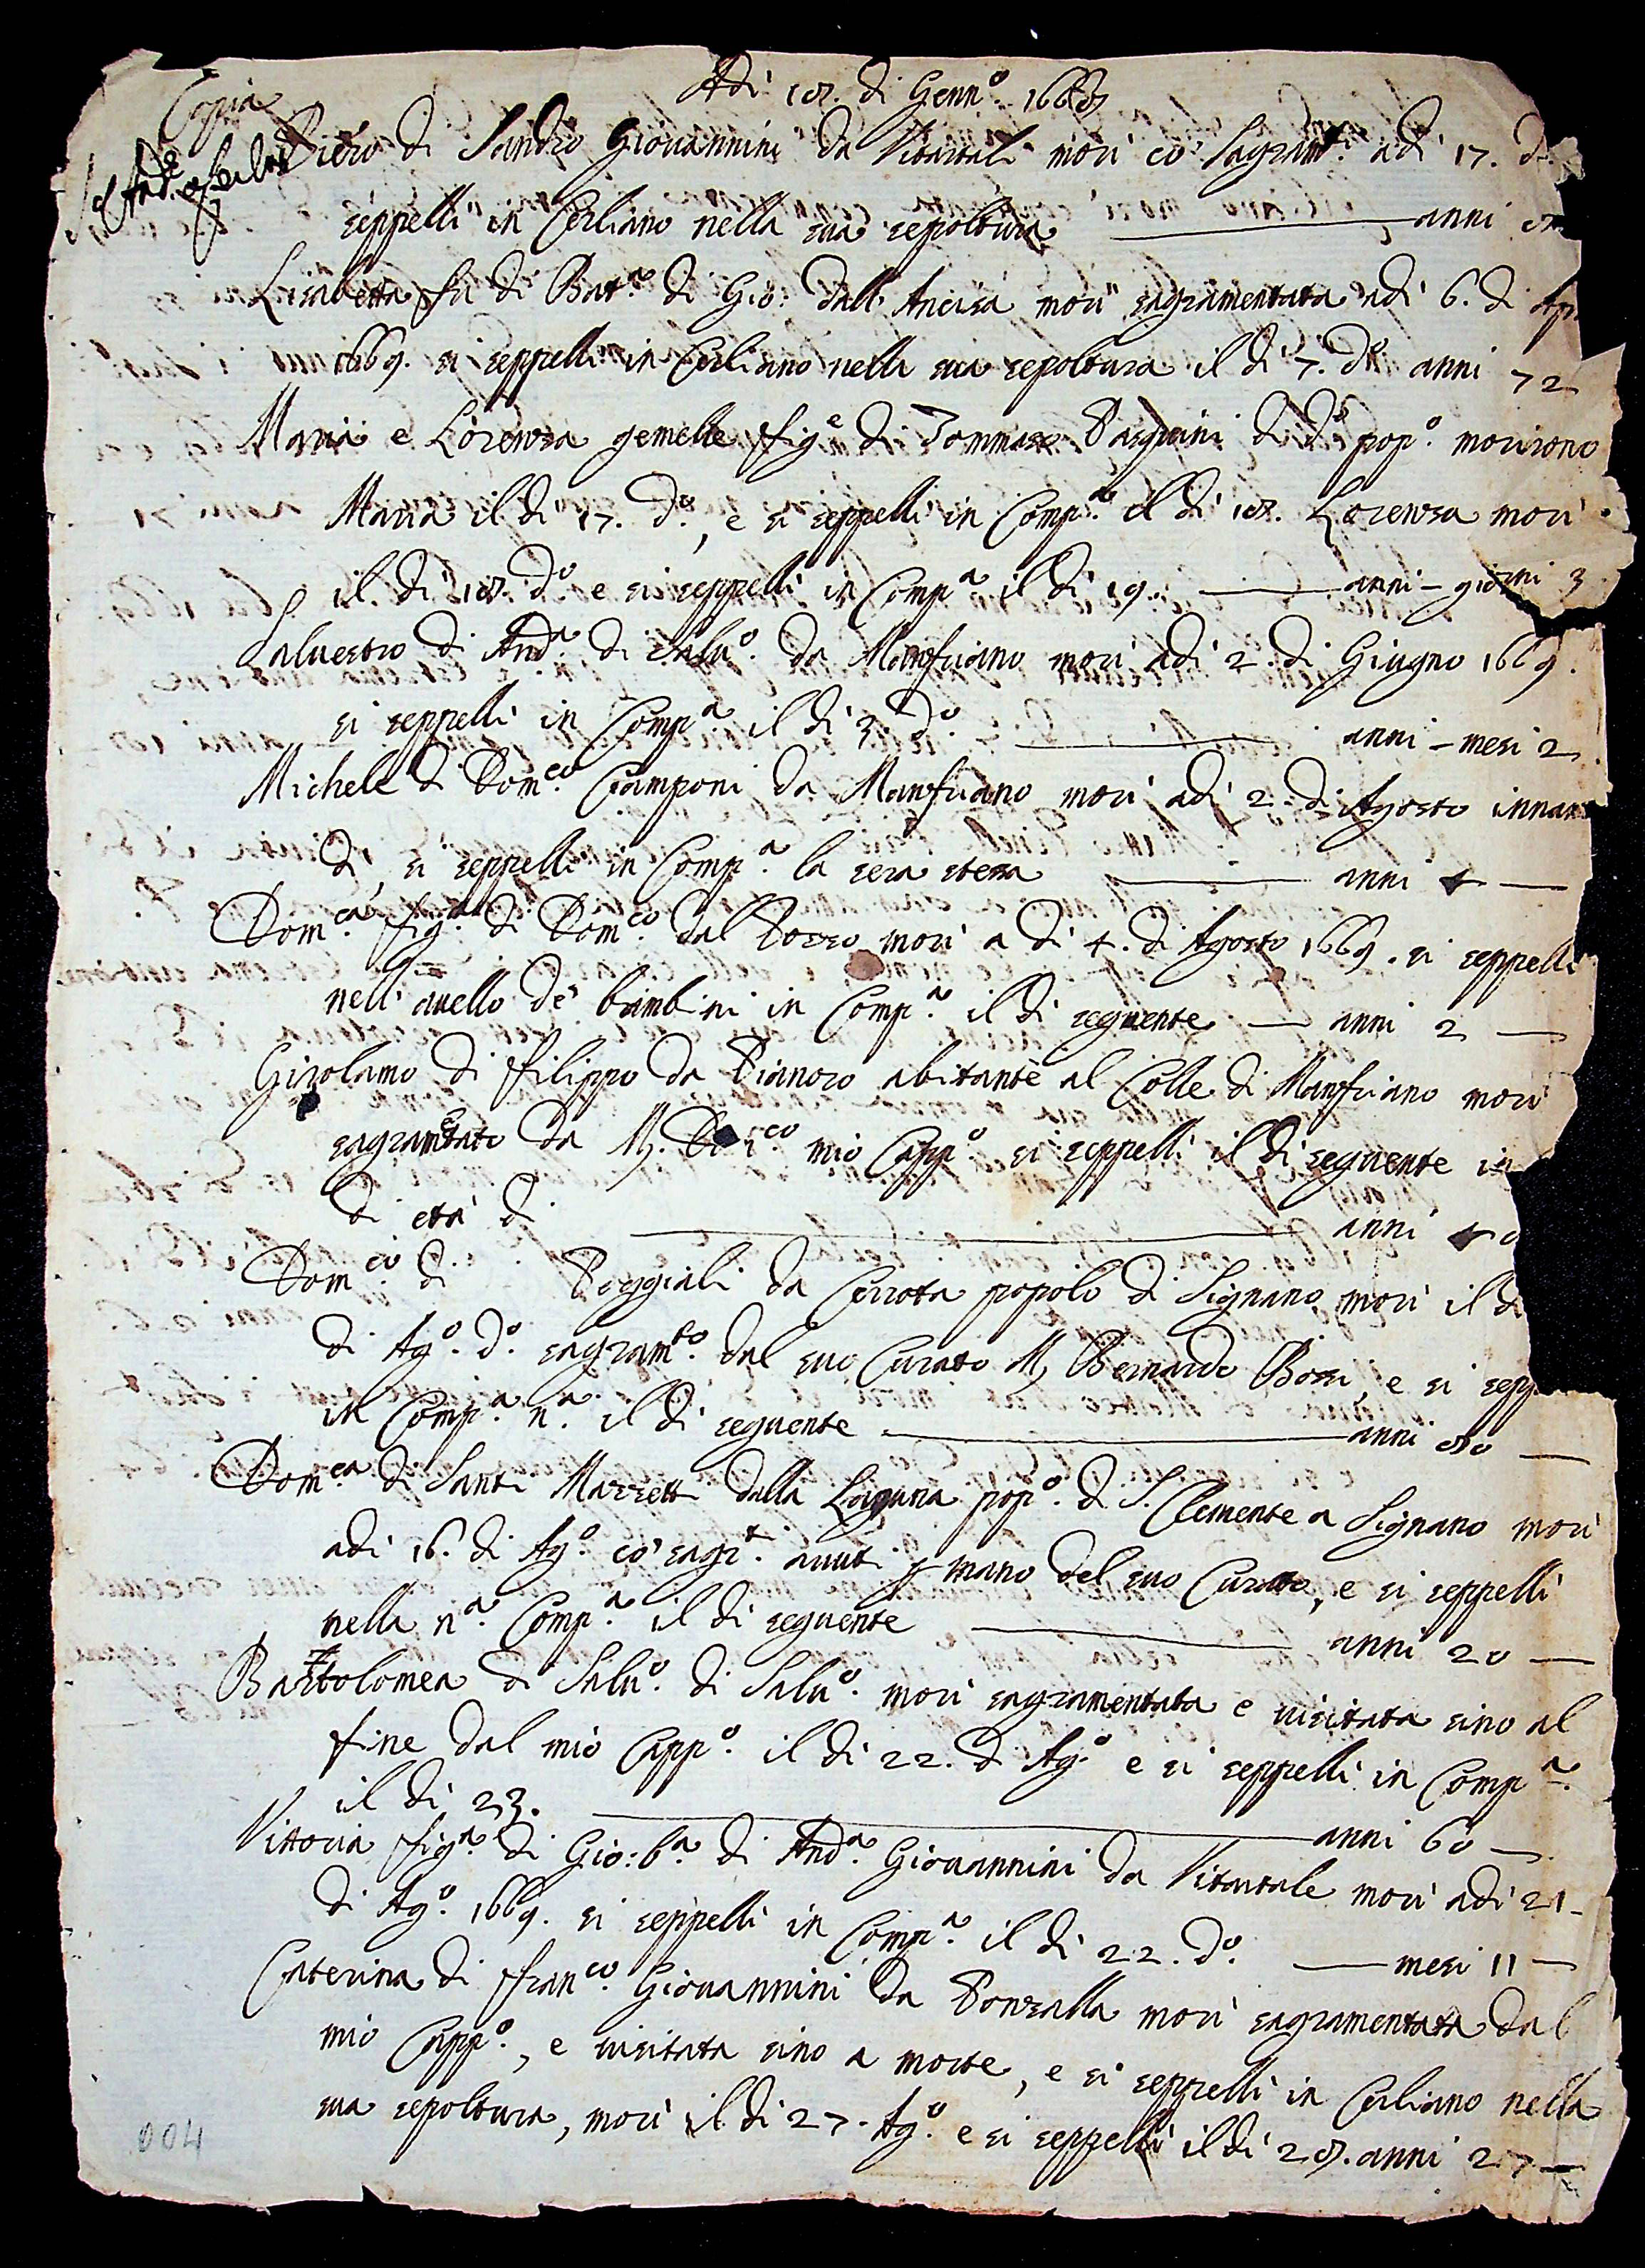 Adi 18. di Genn.o 1668
Copia
Piero di Sandro Giouannini da Vitartali morì co' Sagram.ti adi 17. d
seppellì in Cerliano nella sua sepoltura anni
Lisabetta fu di Bat.a di Gio: dall' Ancisa morì sagramentata adi 6. di Ap
1669. si seppellì in Cerliano nella sua sepoltura il dì 7. d.o anni 72
Maria e Lorenza gemelle fig.e di Tommaso Pasquini di d.o pop.o morirono
Maria il dì 17. d.o, e si seppellì in Comp.a il dì 18. Lorenza morì
il dì 18. d.o e si seppellì in Comp.a il dì 19. anni - giorni 3
Saluestro di And.a di Salu.o da Manfriano morì adi 2. di Giugno 1669.
si seppellì in Comp.a il dì 3. d.o anni - mesi 2
Michele di Dom.co Ciamponi da Manfriano morì adi 2. di Agosto innanz
dì, si seppellì in Comp.a la sera stessa anni 4
Dom.ca fig.a di Dom.co dal Pozzo morì a dì 4. di Agosto 1669. si seppellì
nell' auello de' bambini in Comp.a il dì seguente anni 2
Girolamo di Filippo da Pianoro abitante al Colle di Manfriano morì
sagramentato da M. mio Capp.o si seppellì il dì seguente in
di età di anni 4
Dom.co di Poggiali da Cerrota popolo di Signano morì il dì
di Ag.o d.o sagram.to dal suo Curato M. Bernardo Bossi, e si sepp
in Comp.a n.a il dì seguente anni 80
Dom.ca di Santi Mazzetti dalla Laguna pop.o di S. Clemente a Signano morì
adi 16. di Ag.o co' sagr.ti auuti p mano del suo Curato, e si seppellì
nella n.a Comp.a il dì seguente anni 20
Bartolomea di Salu.o di Salu.o morì sagramentata e uisitata sino al
fine dal mio Capp.o il dì 22. di Ag.o e si seppellì in Comp.a
il dì 23. anni 60
Vittoria fig.a di Gio: b.a di And.a Giouannini da Vitartale morì adi 21
di Ag.o 1669. si seppellì in Comp.a il dì 22. d.o mesi 11
Caterina di Fran.co Giouannini da Ponzalla morì sagramentata dal
mio Capp.o, e uisitata sino a morte, e si seppellì in Cerliano nella
sua sepoltura, morì il dì 27. Ag.o e si seppellì il dì 28. anni 27
004